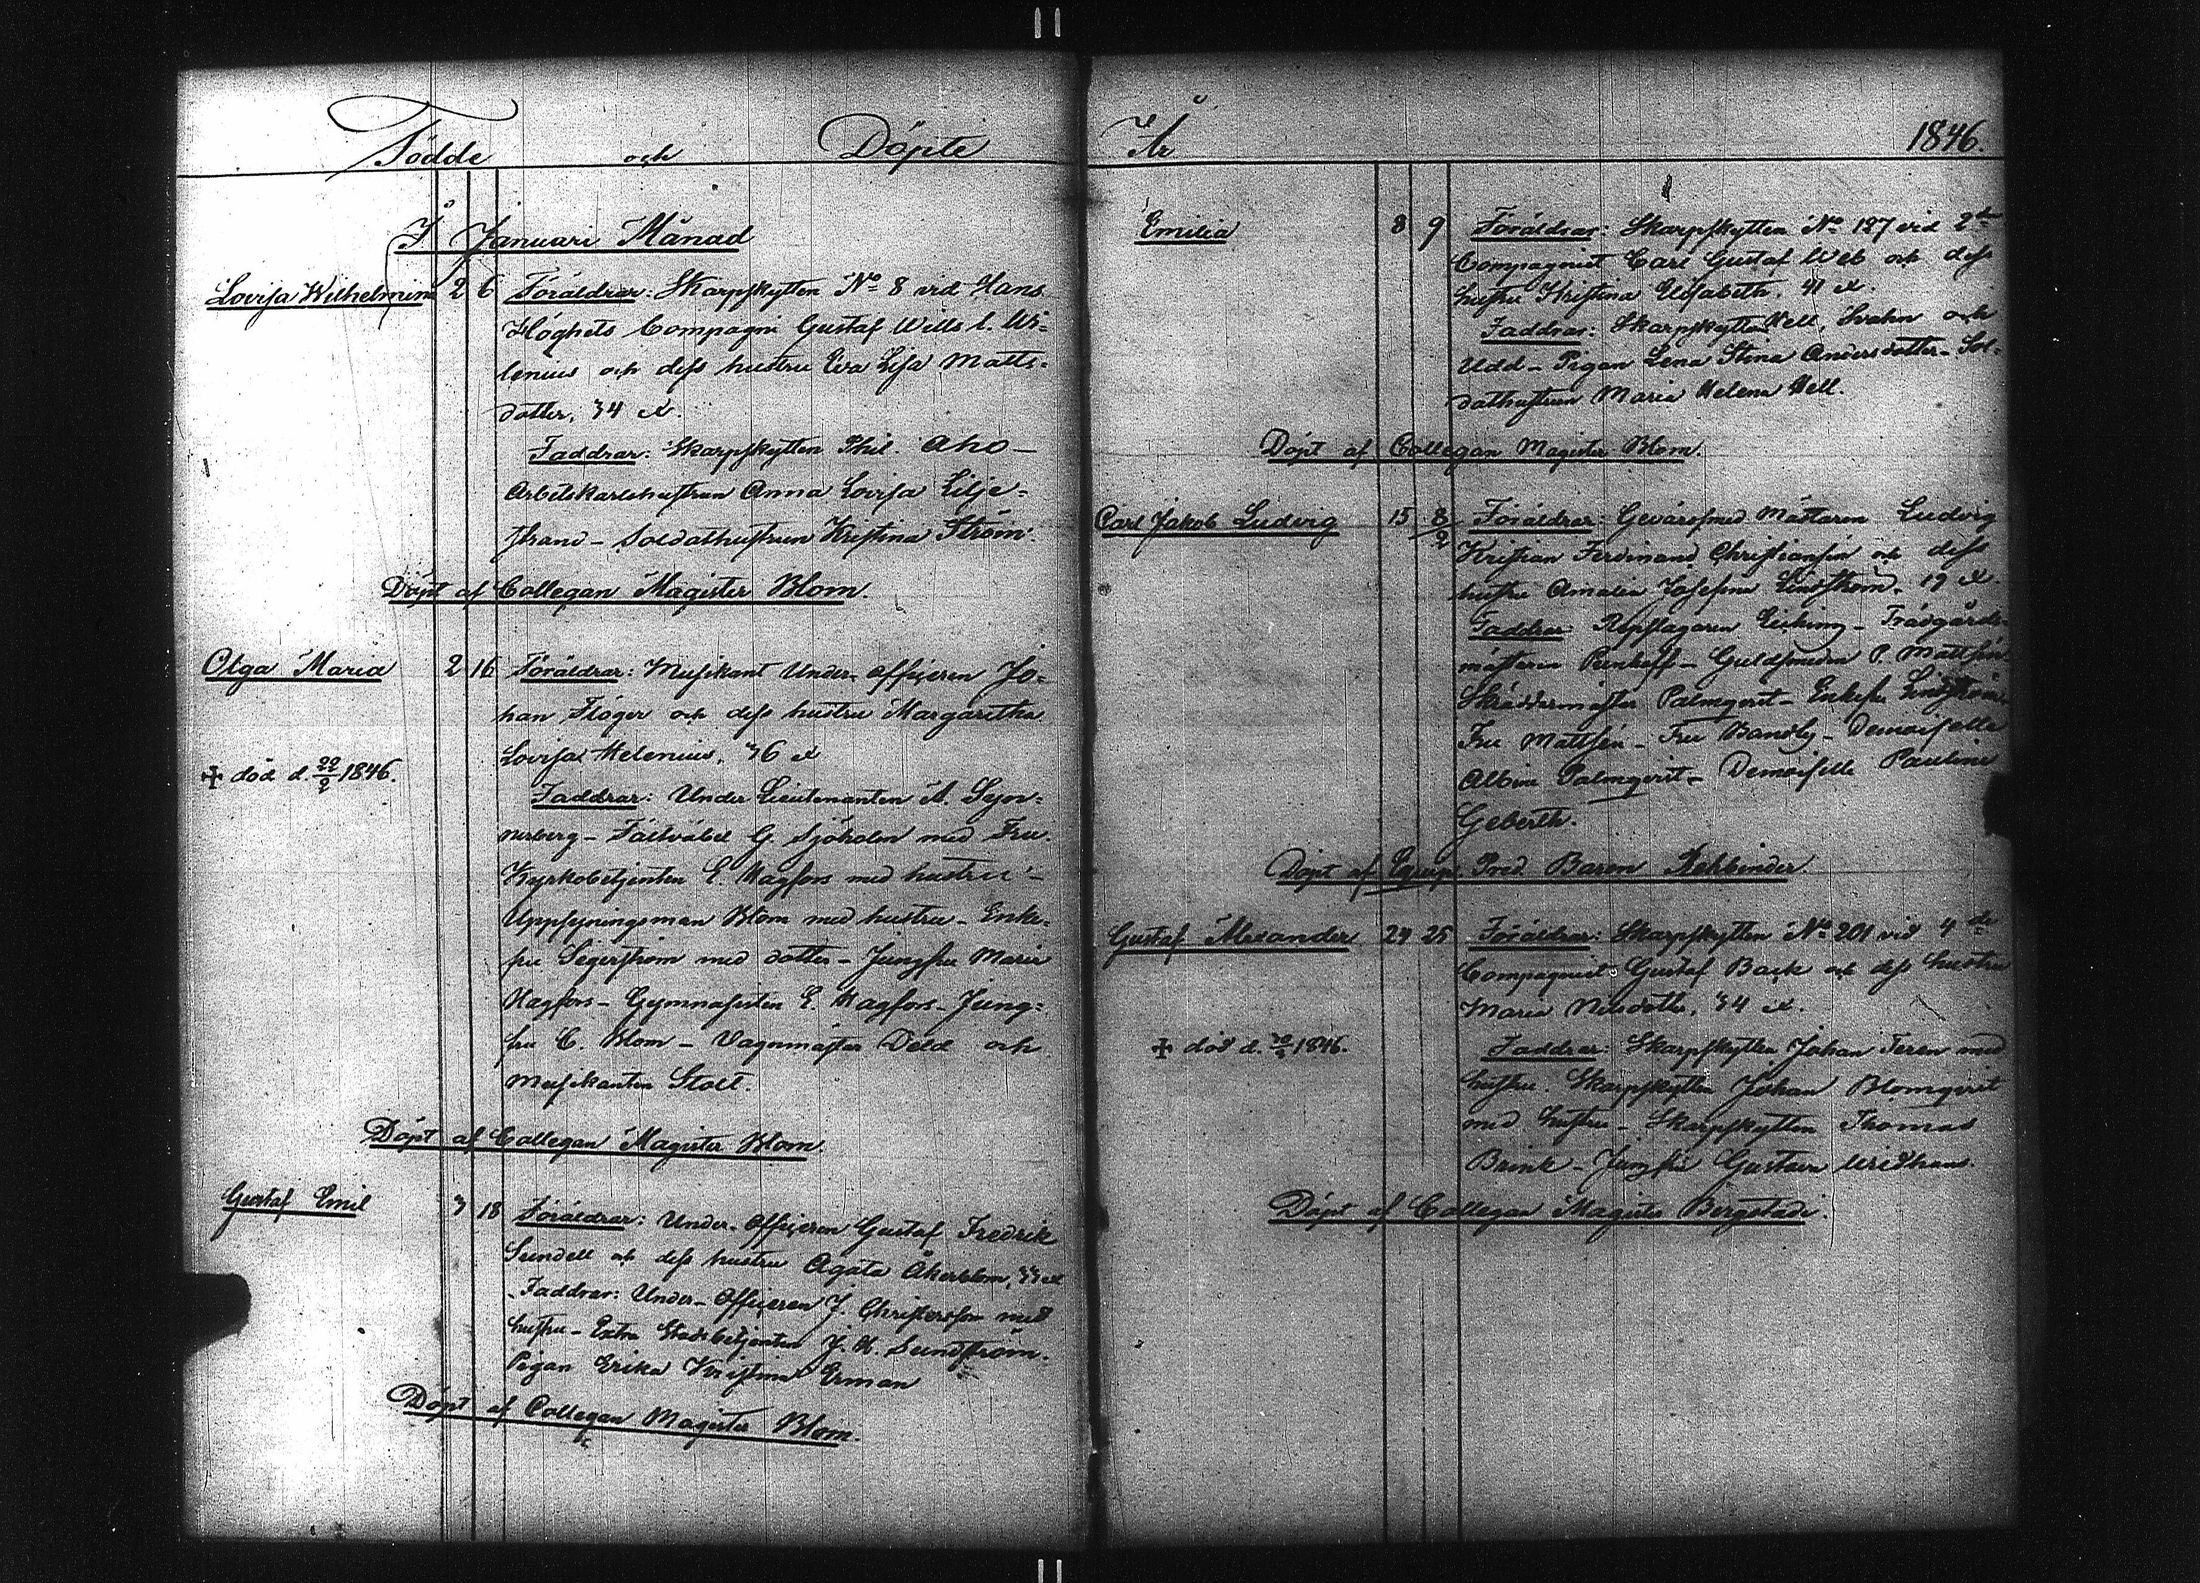 Födde och Döpte
I Januari Månad
Lovisa Wilhelmina 2 6 Föräldrar: Skarpskytten No 8 vid Hans
Höghets Compagni Gustaf Wills l. Wi=
lenius och dess hustru Eva Lisa Matts=
dotter, 34 
Faddrar: Skarpskytten Phil Aho —
Arbetskarlshustrun Anna Lovisa Lilje=
strand — Soldathustrun Kristina Ström.
Döpt af Collegan Magister Blom.
Olga Maria 2 16 Föräldrar: Musikant Under-officeren Jo=
han Flöger och dess hustru Margaretha
Lovisa Helenius, 36
† död d. 22/2 1846.
Faddrar: Under Lieutenanten A.
— Fältväbel G. Sjöholm med Fru
Kyrkobetjenten E. Hagfors med hustru —
Uppsyningsman Blom med hustru — Enke=
fru Segerström med dotter — Jungfru Maria
Hagfors — Gymnasisten E. Hagfors — Jung=
fru C. Blom — Vagnmästar Dold och
Musikanten Stolt.
Döpt af Collegan Magister Blom.
Gustaf Emil 3 18 Föräldrar: Under-Officeren Gustaf Fredrik
Sundell och dess hustru Agata Åkerblom, 33
Faddrar: Under-Officeren J. Christersson med
hustru — Extra Stadsbetjenten J. H. Sundström.
Pigan Erika Kristina Erman
Döpt af Collegan Magister Blom.
År 1846.
Emilia 8 9 Föräldrar: Skarpskytten No 127 vid 2dra
Compagniet Carl Gustaf Web och dess
hustru Kristina Elisabeth, 41
Faddrar: Skarpskytten Hell, Svahn och
Udd — Pigan Lena Stina Andersdotter — Sol=
dathustrun Maria Helena Hell.
Döpt af Collegan Magister Blom.
Carl Jakob Ludvig 15 8/2 Föräldrar: Gevärssmed Mästaren Ludvig
Kristian Ferdinand Christiansen och dess
hustru Amalia Josefina Lindström, 19
Faddrar: Repslagaren — Trädgårds=
mästaren — Guldsmeden P. Mattsén
Skräddermäster Palmqvist — Enkefru Lindström
Fru Mattsén — Fru Bandly — Demoiselle
Albina Palmqvist — Demoiselle Pauline
Geberth.
Döpt af Pred Baron Rehbinder.
Gustaf Alexander 24 25 Föräldrar: Skarpskytten No 201 vid 4de
Compagniet Gustaf Back och dess hustru
Maria Nilsdotter, 34
† död d. 1846.
Faddrar: Skarpskytten Johan Feren med
hustru. Skarpskytten Johan Blomqvist
med hustru — Skarpskytten Thomas
Brink — Jungfru Gustava
Döpt af Collegan Magister Bergstadi.